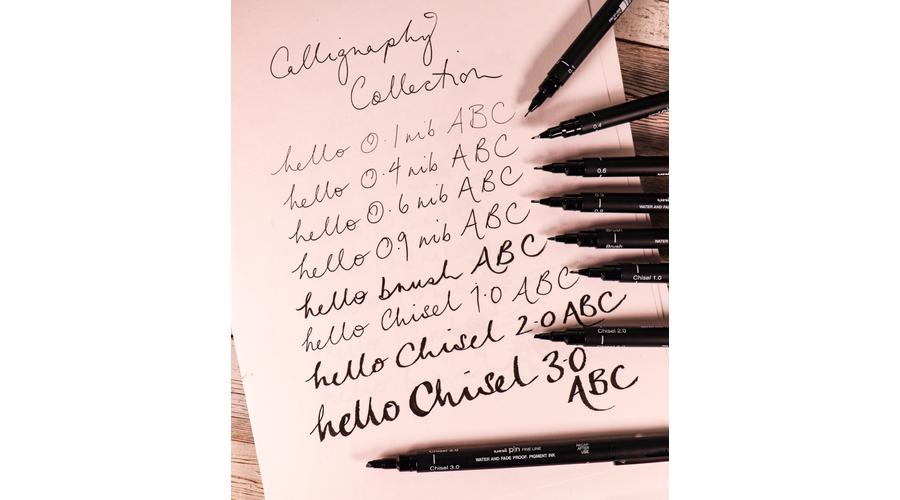 Calligraphy
Collection
hello 0.1 nib ABC
hello 0.4 nib ABC
hello 0.6 nib ABC
hello 0.9 nib ABC
hello brush ABC
hello Chisel 1.0 ABC
hello Chisel 2.0 ABC
hello Chisel 3.0
ABC
0.1
0.4
0.6
Brush
Brush
Chisel 1.0
Chisel 2.0
uni pin FINE LINE
WATER AND FADE PROOF, PIGMENT INK
RECAP
AFTER
USE
Chisel 3.0